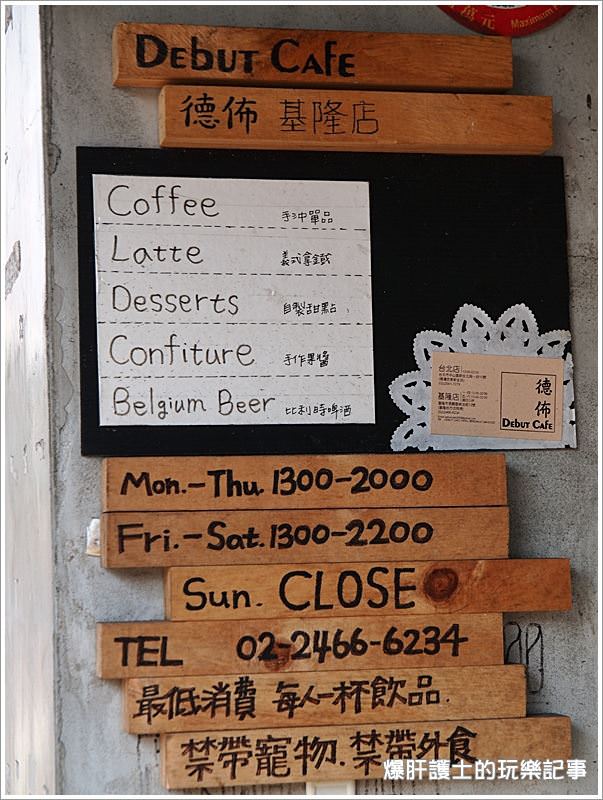 萬元 Maximum
DEBUT CAFE
德佈 基隆店
Coffee 手沖單品
Latte 義式拿鐵
Desserts 自製甜點
Confiture 手作果醬
Belgium Beer 比利時啤酒
台北店
基隆店
德佈
DEBUT CAFE
Mon.-Thu. 1300-2000
Fri.-Sat. 1300-2200
Sun. CLOSE
TEL 02-2466-6234
最低消費 每人一杯飲品.
禁帶寵物.禁帶外食
爆肝護士的玩樂記事